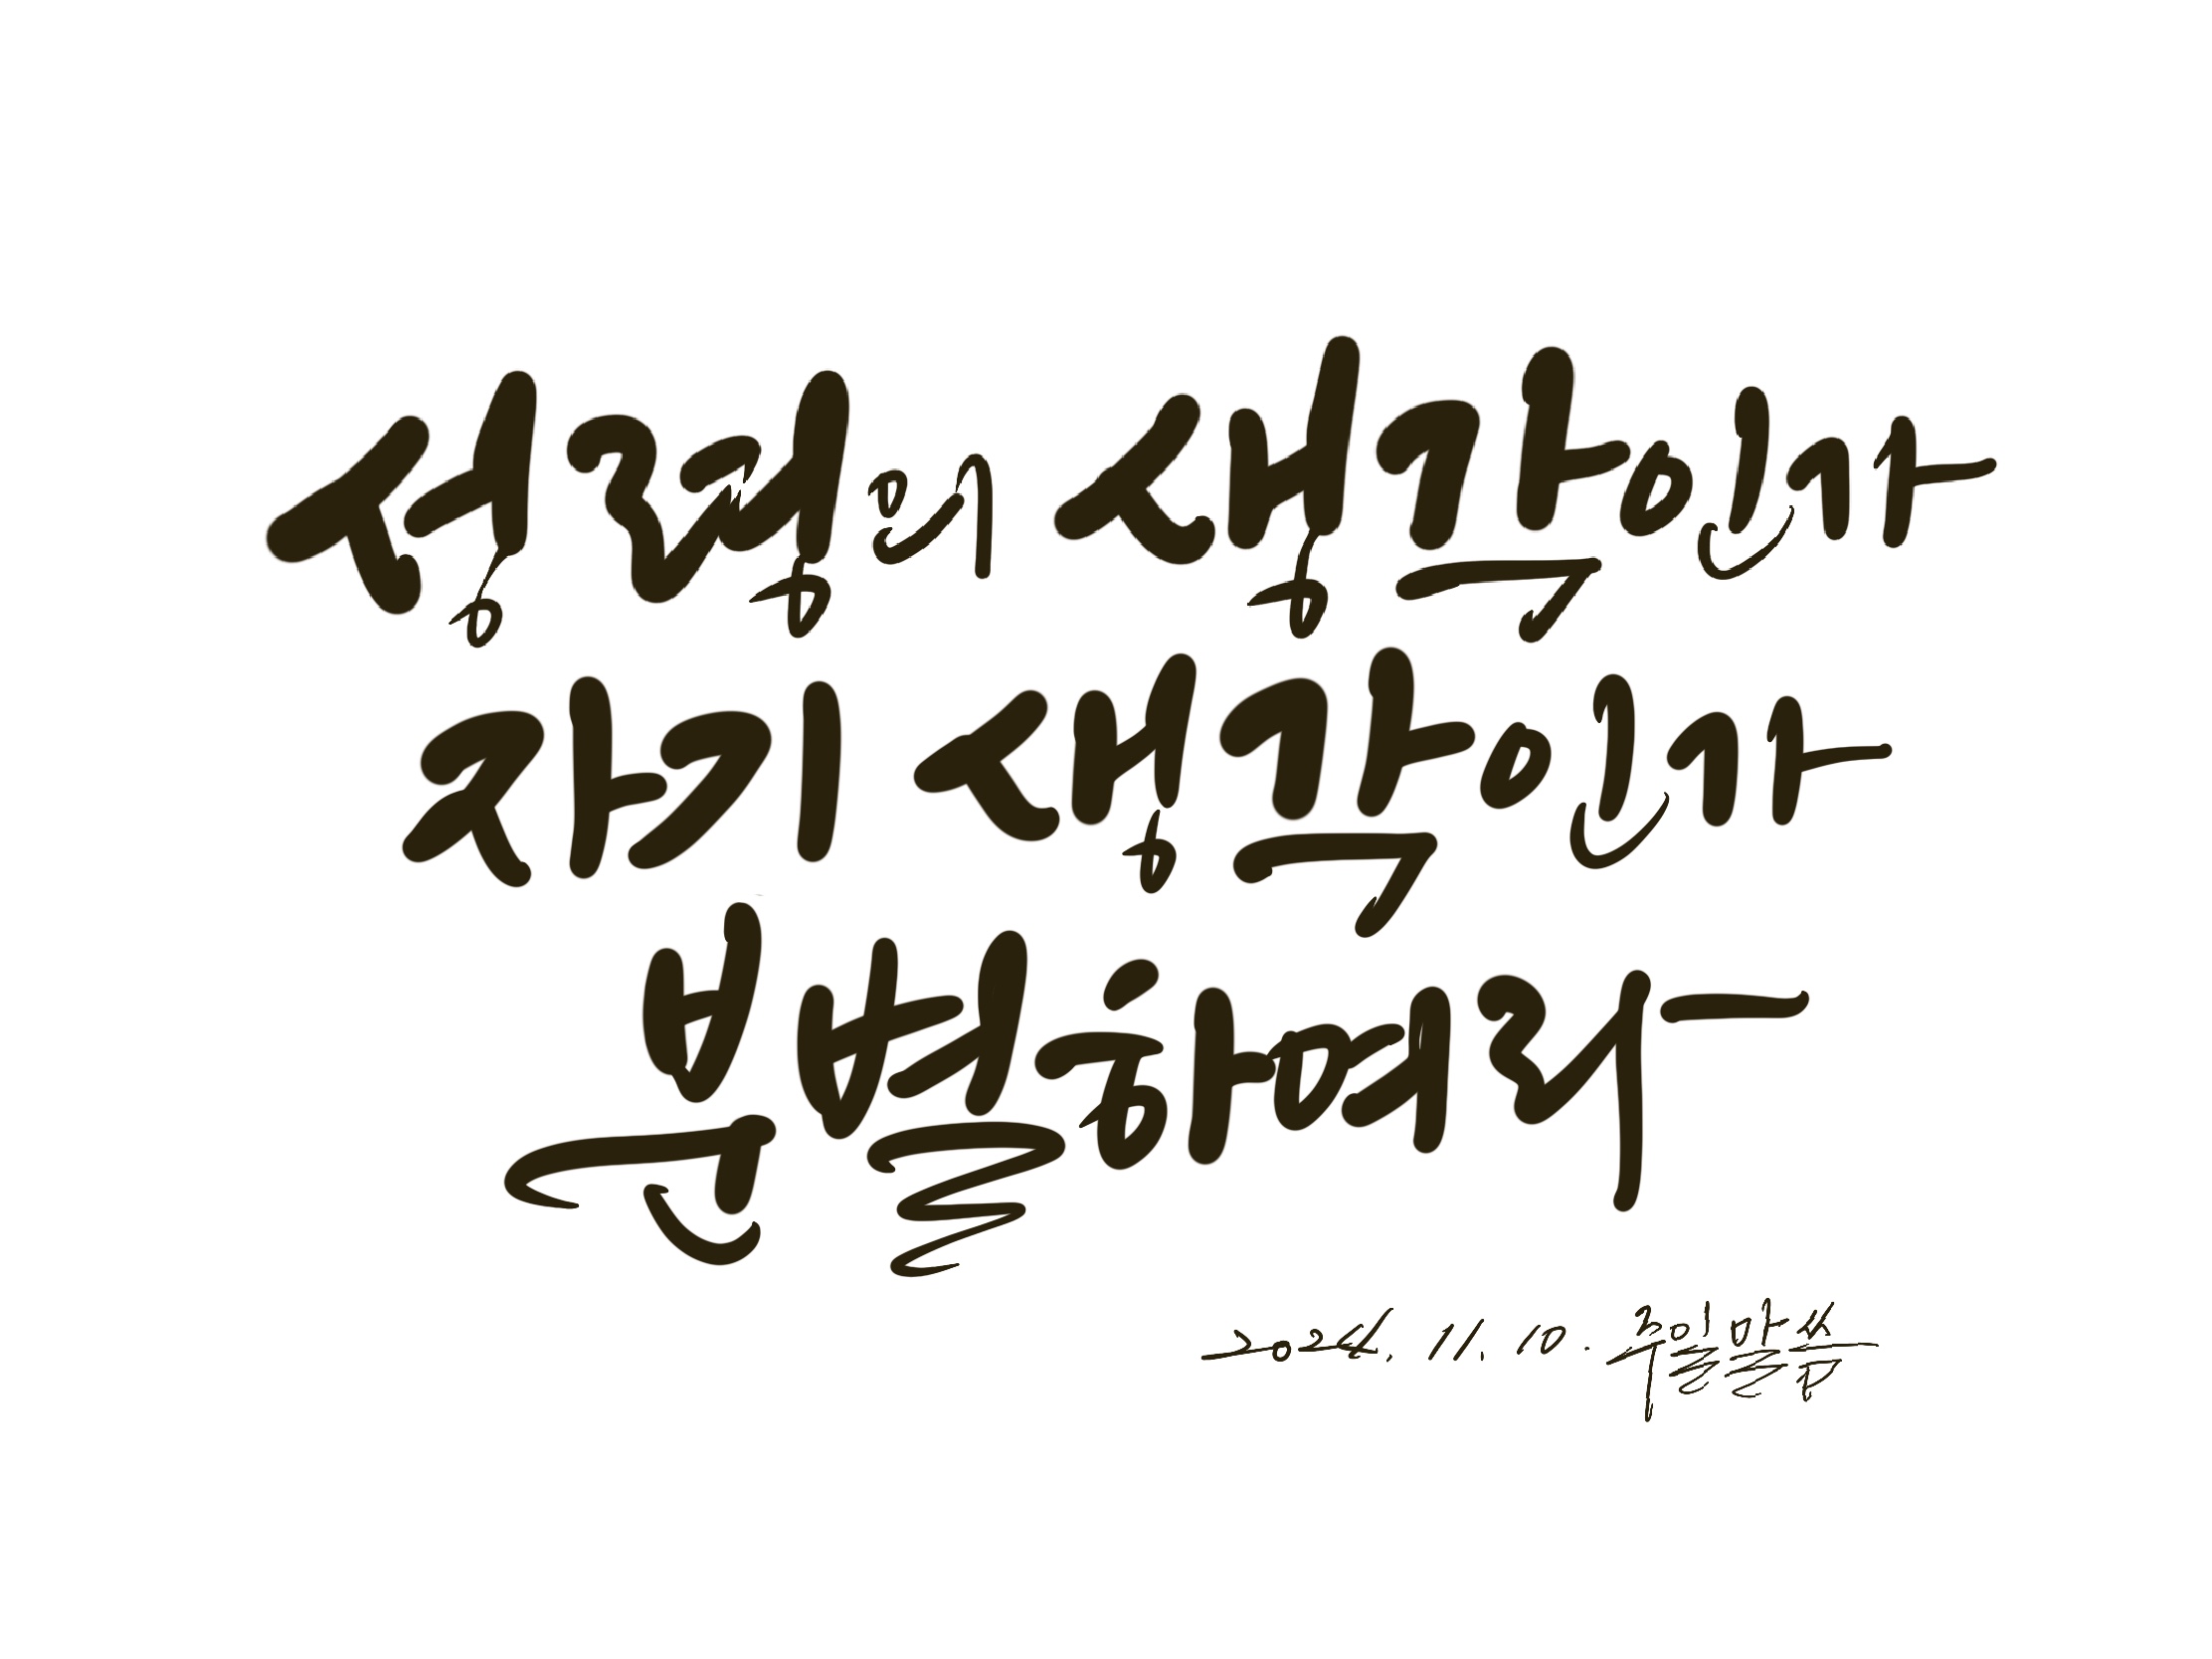 성령의 생각인가
자기 생각인가
분별하여라
2024. 11. 10. 주일말씀